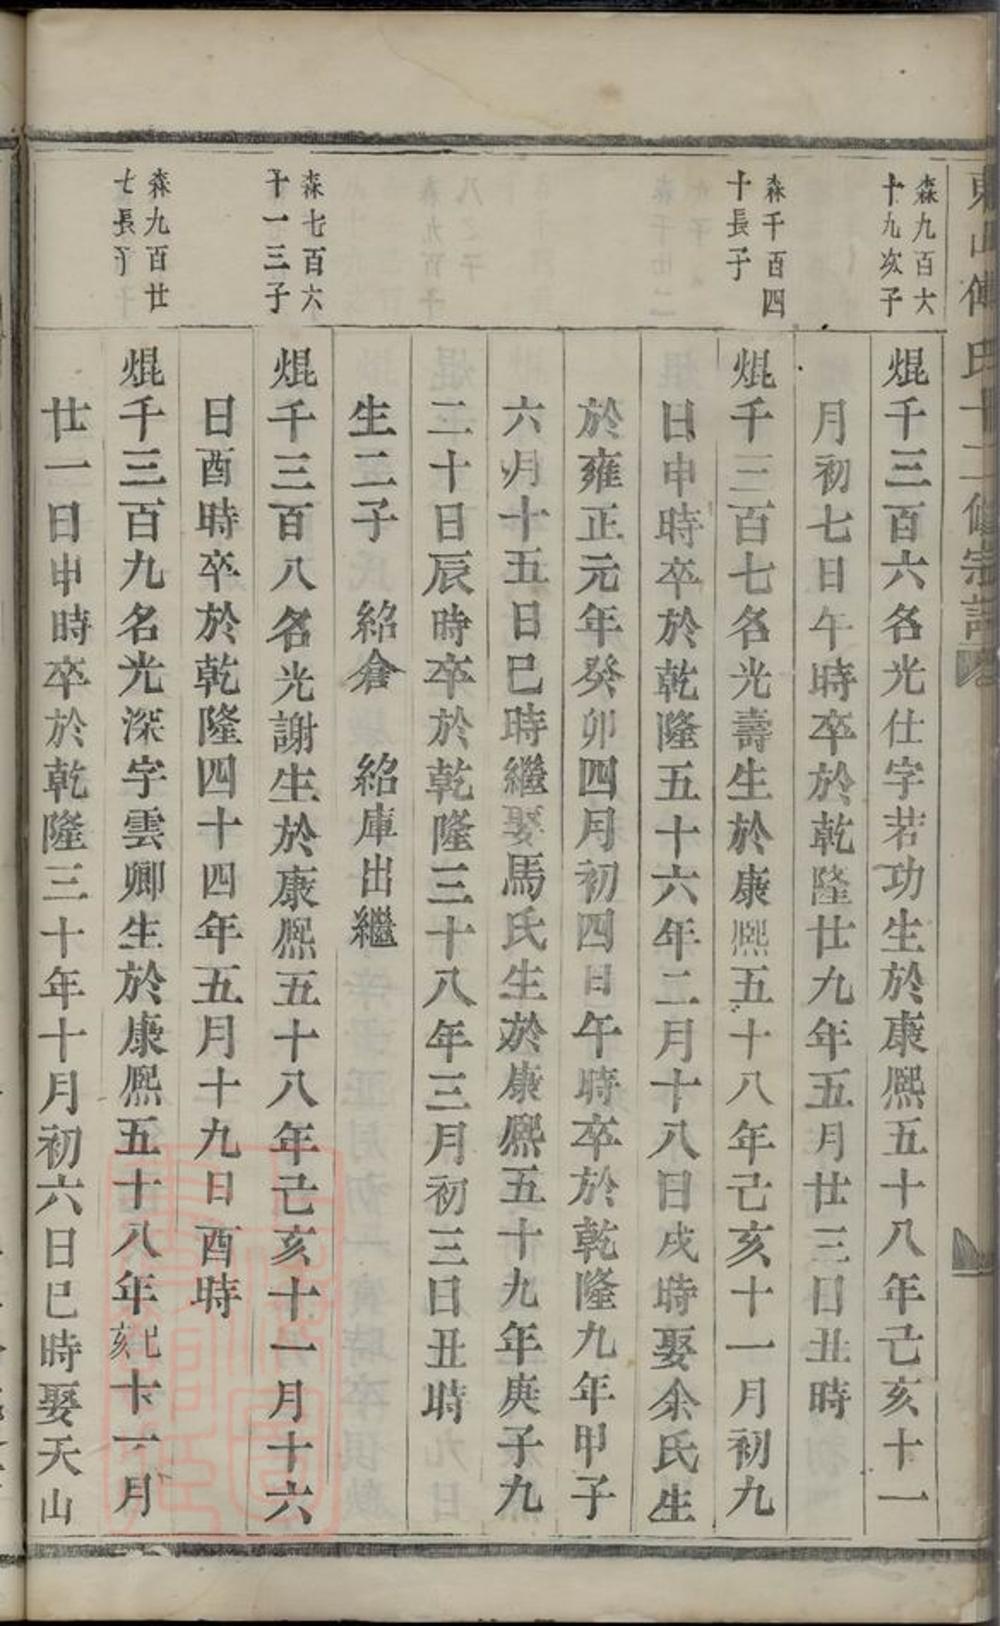 東山傅氏十二修宗譜
森九百六
十九次子
焜千三百六名光仕字若功生於康熙五十八年己亥十一
月初七日午時卒於乾隆廿九年五月廿三日丑時
森千百四
十長子
焜千三百七名光壽生於康熙五十八年己亥十一月初九
日申時卒於乾隆五十六年二月十八日戌時娶余氏生
於雍正元年癸卯四月初四日午時卒於乾隆九年甲子
六月十五日巳時繼娶馬氏生於康熙五十九年庚子九
二十日辰時卒於乾隆三十八年三月初三日丑時
生二子 紹倉 紹庫出繼
森七百六
十一三子
焜千三百八名光謝生於康熙五十八年己亥十一月十六
日酉時卒於乾隆四十四年五月十九日酉時
森九百廿
七長子
焜千三百九名光深字雲卿生於康熙五十八年己亥十一月
廿一日申時卒於乾隆三十年十月初六日巳時娶天山